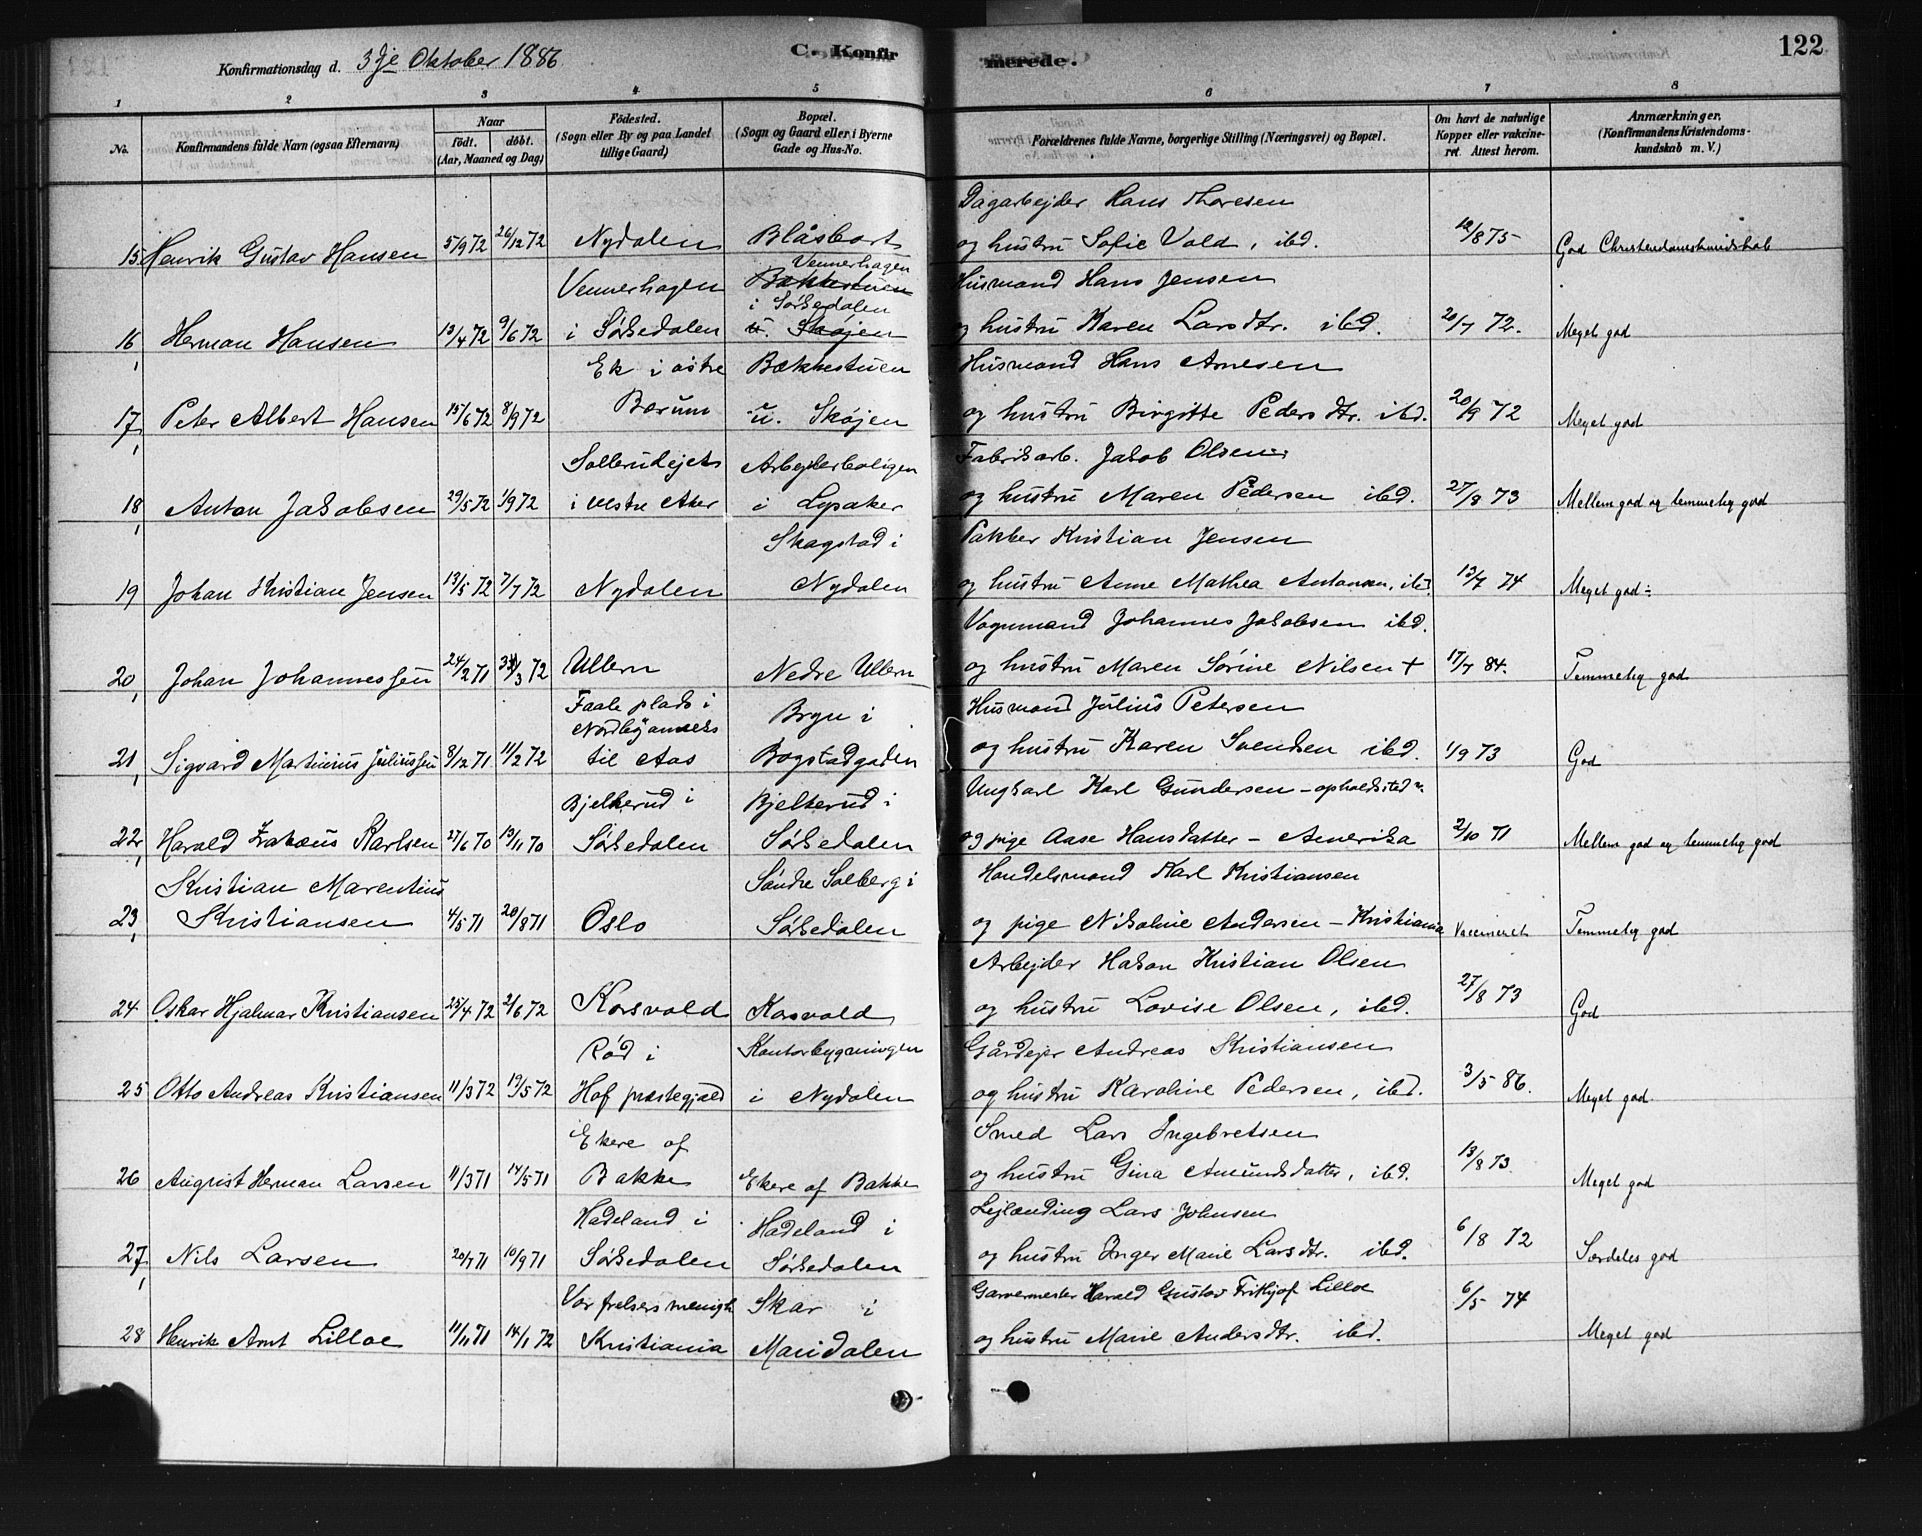 Konfirmationsdag d. 3dje Oktober 1886
C. Konfirmerede.
122
1 2 3 4 5 6 7 8
No. Konfirmandens fulde Navn (ogsaa Efternavn) Naar født. døbt. (Aar, Maaned og Dag) Fødested. (Sogn eller By og paa Landet tillige Gaard) Bopæl. (Sogn og Gaard eller i Byerne Gade og Hus-No. Forældrenes fulde Navne, borgerlige Stilling (Næringsvei) og Bopæl. Om havt de naturlige Kopper eller vaccineret. Attest herom. Anmærkninger. (Konfirmandens Kristendomskundskab m. V.)
Dagarbejder Hans Thoresen
15 Henrik Gustav Hansen 5/9 72 26/12 72 Nydalen Blåsbort og hustru Sofie Vold, ibd. 12/8 75 God Christendomskundskab
Vennerhagen Vennerhagen Bækkestuen Husmand Hans Jensen
16, Herman Hansen 13/4 72 9/6 72 i Sørkedalen i Sørkedalen u. Skøjen og hustru Karen Larsdtr. ibd. 20/7 72. Meget god
Ek i østre Bækkestuen Husmand Hans Arnesen
17, Peter Albert Hansen 15/6 72 8/9 72 Bærum u. Skøjen og hustru Birgitte Pedersdtr. ibd. 20/9 72 Meget god
Sollerudejet Arbejderboligen Fabrikarb. Jakob Olsen
18, Anton Jakobsen 29/5 72 1/9 72 i vestre Aker i Lysaker og hustru Maren Pedersen ibd. 27/8 73 Mellem god og temmelig god
Skagstad i Pakker Kristian Jensen
19 Johan Kristian Jensen 13/5 72 7/7 72 Nydalen Nydalen og hustru Anne Mathea Antonsen, ibd. 13/7 74 Meget god ÷
Vognmand Johannes Jakobsen ibd.
20, Johan Johannessen 24/2 71 31/3 72 Ullern Nedre Ullern og hustru Maren Sørine Nilsen + 17/7 84. Temmelig god
Faale plads i Nordby annex Bryn i Husmand Julius Petersen
21, Sigvard Martinius Juliussen 8/12 71 11/2 72 til Aas Bogstadgaden og hustru Karen Svendsen ibd. 1/9 73 God
Bjelkerud i Bjelkerud i Ungkarl Karl Gundersen - opholdsted
22, Harald Zakæus Karlsen 27/6 70 13/11 70 Sørkedalen Sørkedalen og pige Aase Hansdatter - Amerika 2/10 71 Mellem god og temmelig god
Kristian Marentius Søndre Solberg i Handelsmand Karl Kristiansen
23, Kristiansen 4/5 71 20/8 71 Oslo Sørkedalen og pige Nikoline Andersen - Kristiania Vaccineret Temmelig god
Arbejder Hakon Kristian Olsen
24 Oskar Hjalmar Kristiansen 25/4 72 2/6 72 Korsvold Korsvold og hustru Lovise Olsen, ibd. 27/8 73 God
Rød i Kontorbygningen Gårdejer Andreas Kristiansen
25 Otto Andreas Kristiansen 11/3 72 19/5 72 Hof præstegjæld i Nydalen og hustru Karoline Pedersen, ibd. 3/5 86. Meget god.
Ekere af Smed Lars Ingebretsen
26 August Herman Larsen 11/3 71 14/5 71 Bakke Ekere af Bakke og hustru Gina Amundsdatter, ibd. 13/8 73 Meget god
Hadeland i Hadeland i Lejlænding Lars Johnsen
27, Nils Larsen 20/7 71 10/9 71 Sørkedalen Sørkedalen og hustru Inger Marie Larsdtr. ibd. 6/8 72 Særdeles god
Vor frelsers menigh Skar i Garvermester Harald Gustav Frithjof Lilloe
28 Henrik Arnt Lilloe 11/11 71 14/1 72 Kristiania Maridalen og hustru Marie Andersdtr. ibd. 6/5 74 Meget god